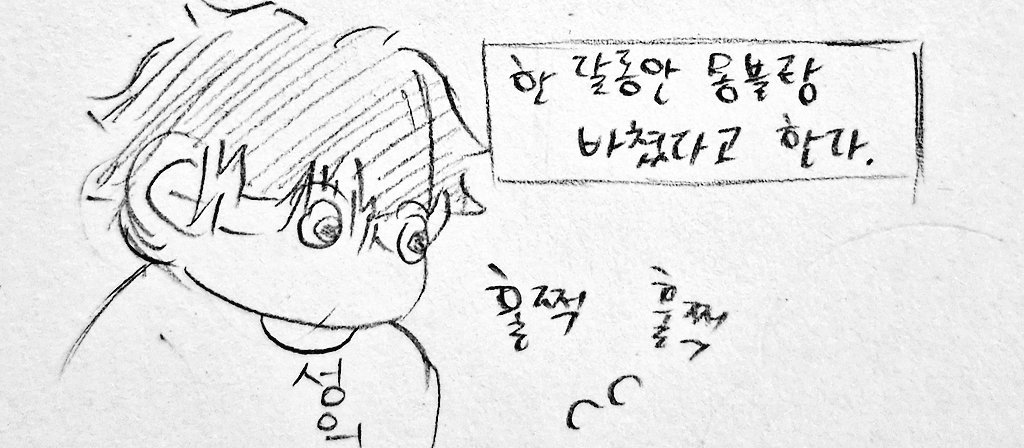 한 달동안 몽블랑
바쳤다고 한다.
훌쩍 훌쩍
성우